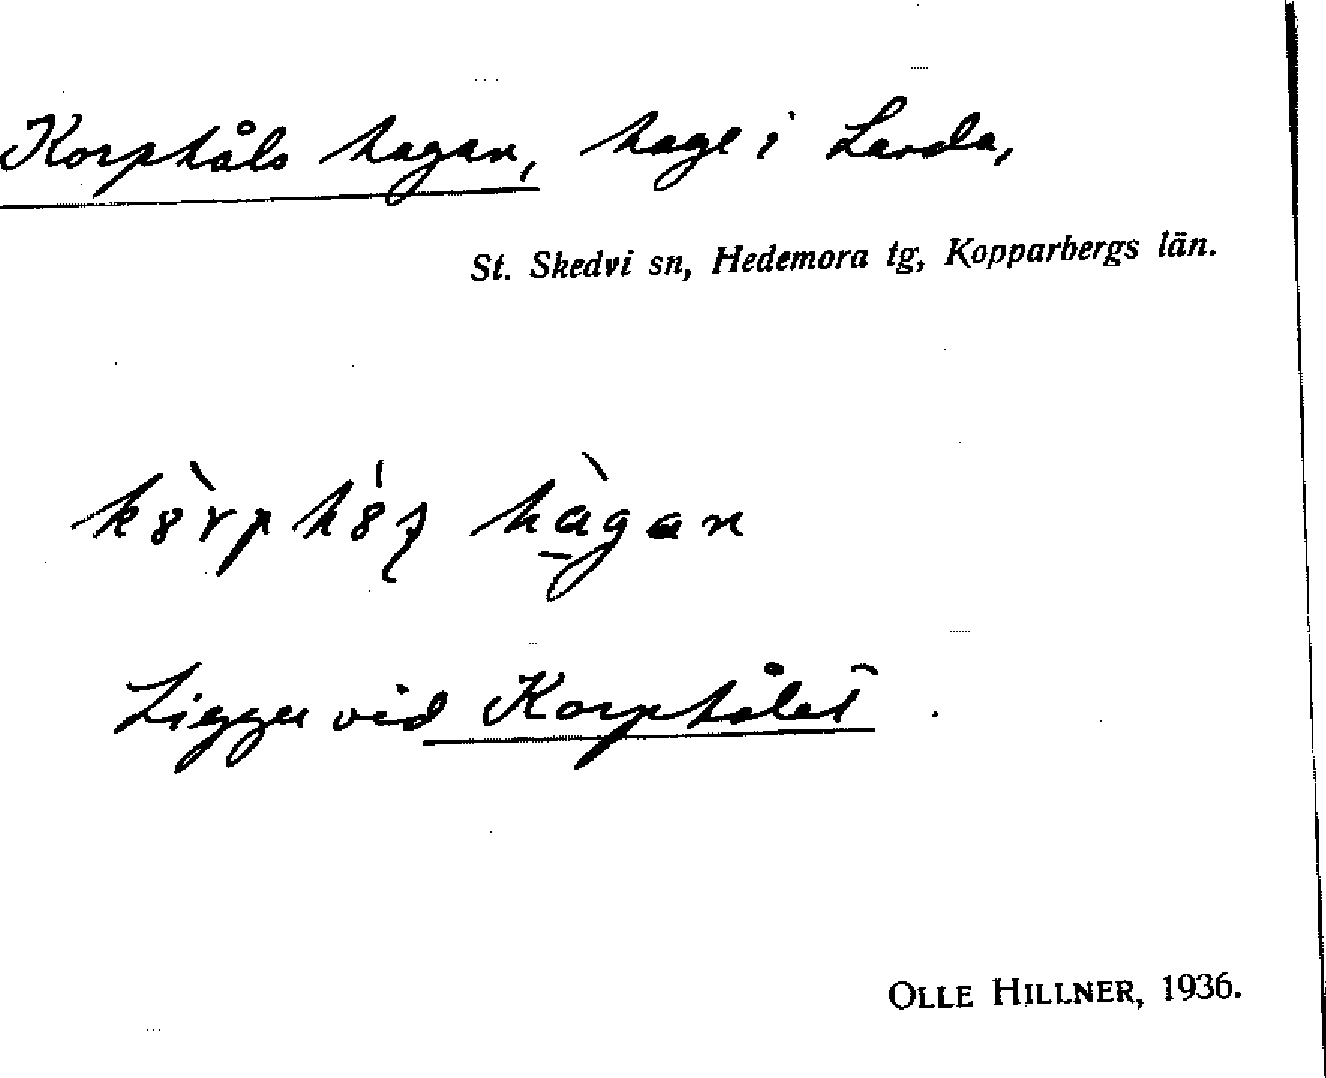 Korphåls hagan, hage i Landa,
St. Skedvi sn, Hedemora tg, Kopparbergs län.
hàgan
Ligger vid Korphålet .
OLLE HILLNER, 1936.